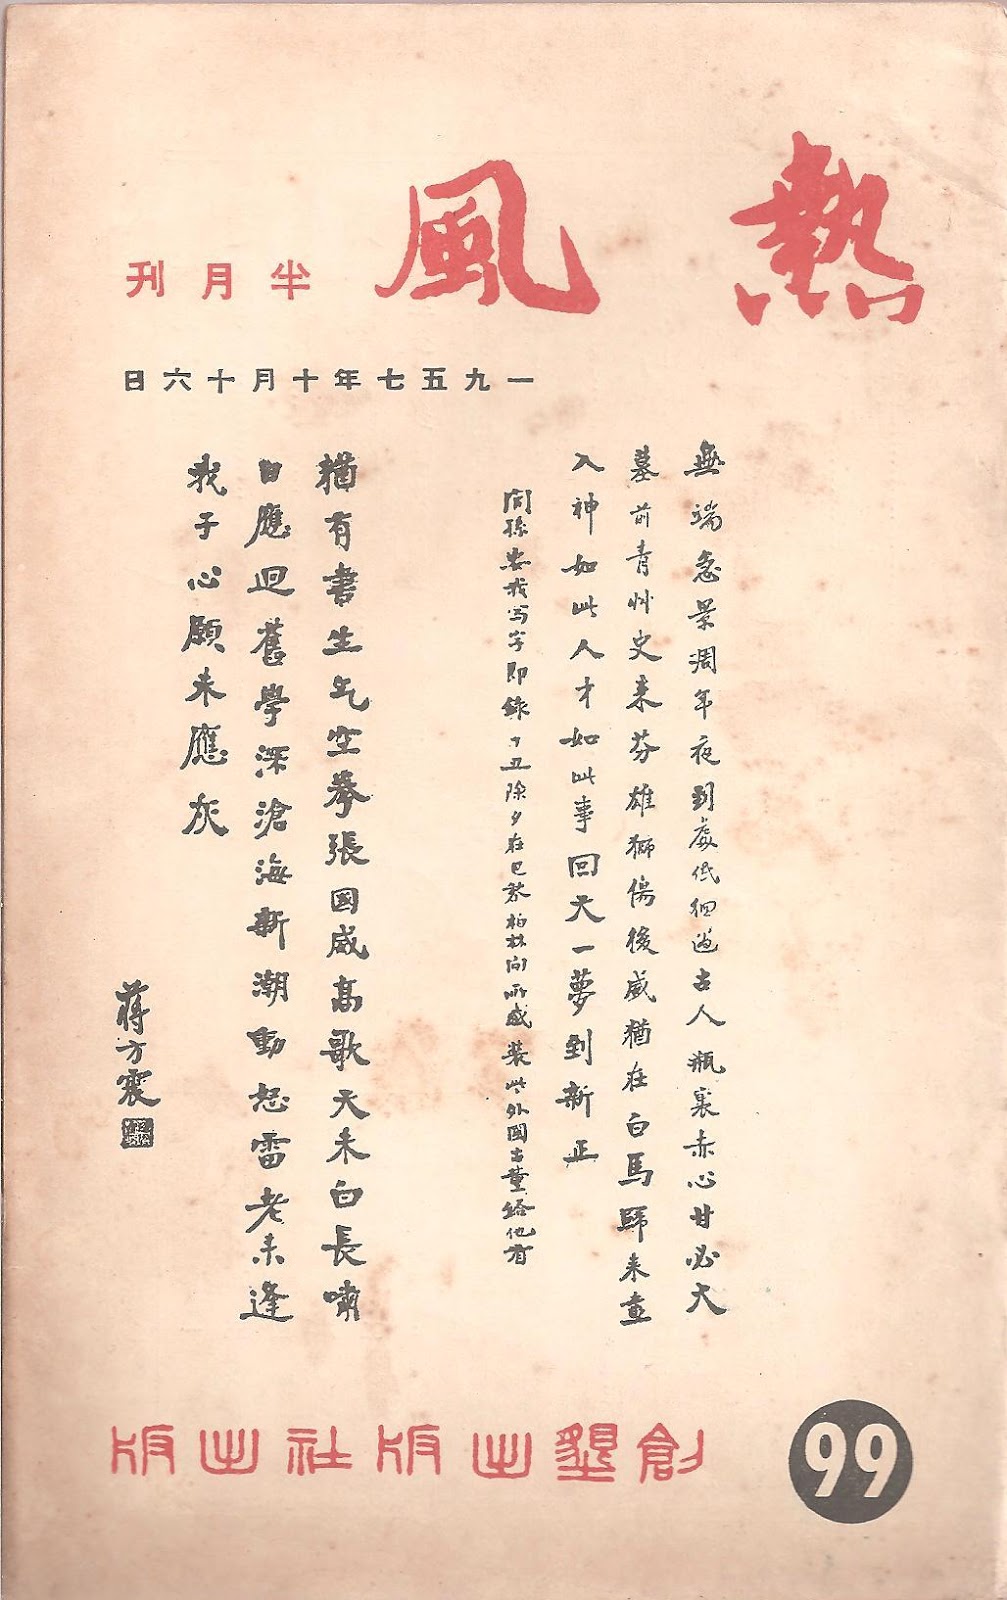 熱風
半月刊
一九五七年十月十六日
無端急景凋年夜到處低徊過古人瓶裏赤心甘必大
墓前青草史來芬雄獅傷後威猶在白馬歸來畫
入神如此人才如此事回天一夢到新正
我寫字即錄丁丑除夕在巴黎柏林間所感裝此外國古董給他看
猶有書生氣空拳張國威高歌天未白長嘯
日應迴舊學深滄海新潮動怒雷老來逢
我子心願未應灰
蔣方震
創墾出版社出版
99